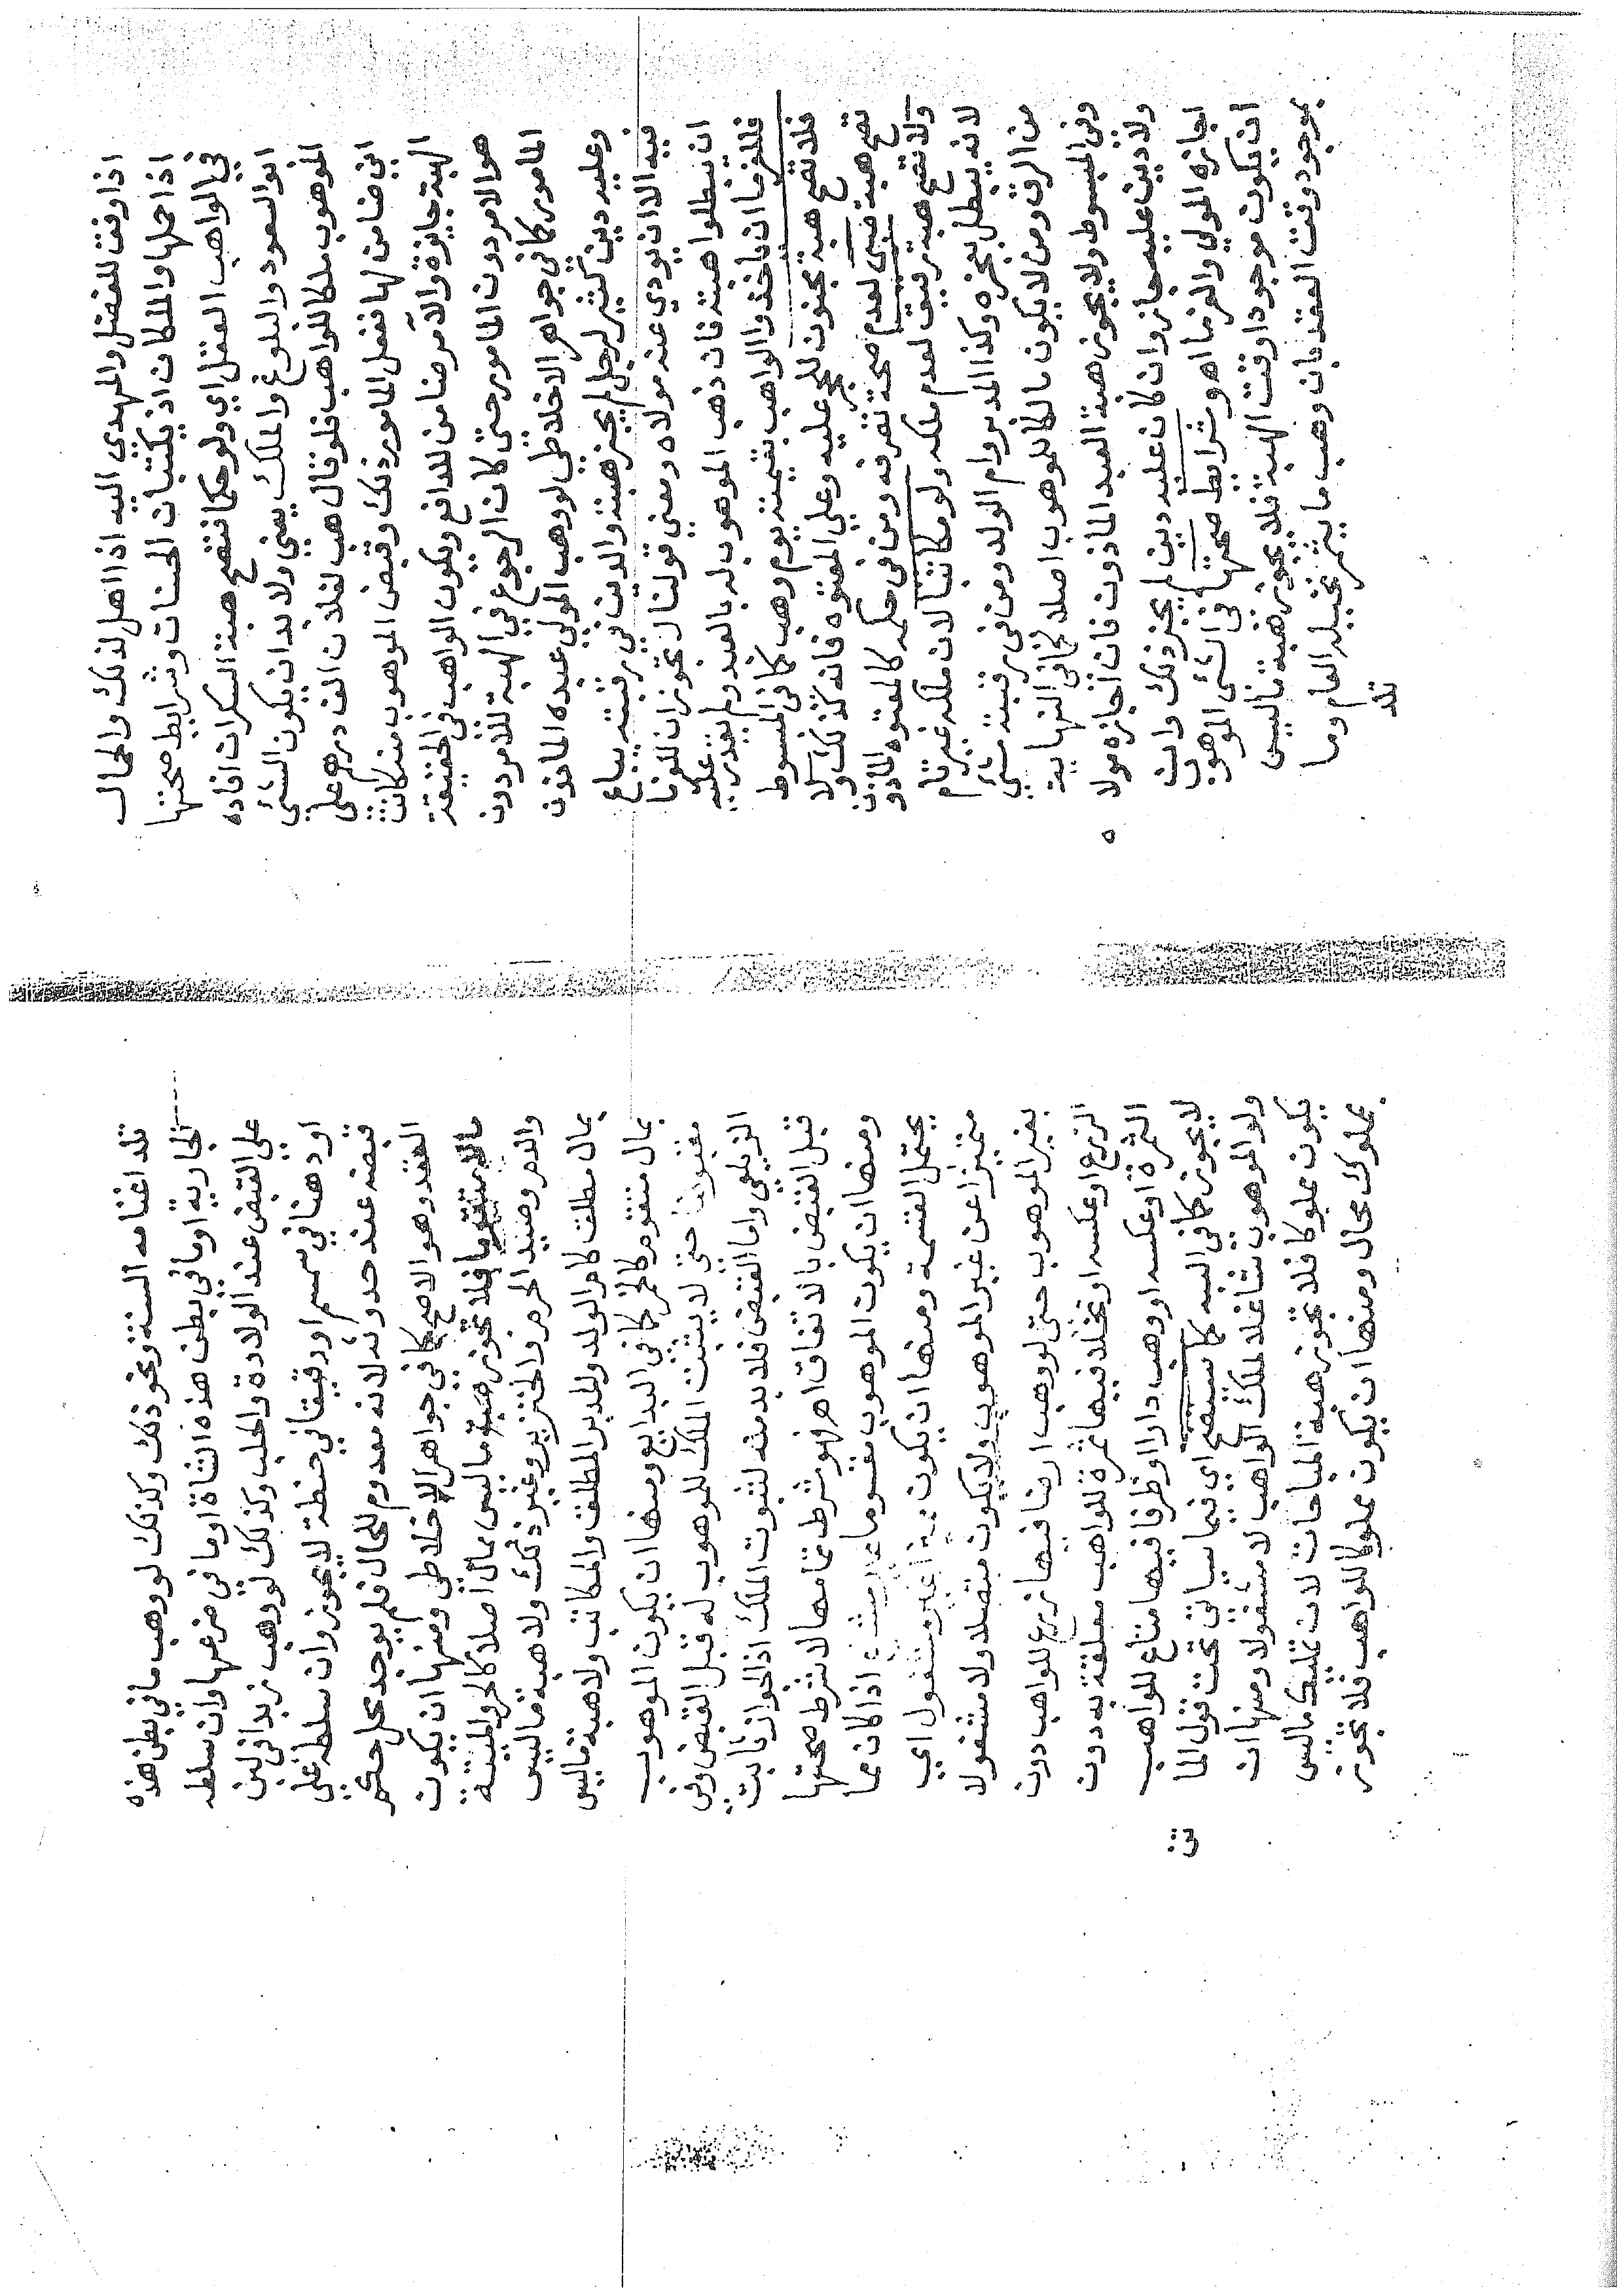 اذا وقف للفضل والمهدى اليه اذا اهل لذلك والحال
اذا حملها والمكان اذ يكتبان الحسنات وشرايط صحتها
في الواهب العقل اي ولو حكما فتصح هبة السكران افاده
ابو السعود والبلوغ والملك يعني ولا بد ان يكون الشئ
الموهوب ملكا للواهب فلو قال هب لفلان الف درهم على
اني ضامن لها ففعل المامور ذلك وقبض الموهوب منه كانت
الهبة جايزة والآمر ضامن للدافع ويكون الواهب في الحقيقة
هو الامر دون المامور حتى كان الرجوع في الهبة للآمر دون
المامور كما في جواهر الاخلاطي لو وهب المولى عبده الماذون
وعليه دين كثير لرجل لم يجز هبته والدين في رقبته يباع
فيه الا ان يودي عنه مولاه ومعني قولنا لا تجوز ان للغرما
ان يبطلوا هبته فان ذهب الموهوب له بالعبد ولم يقدر عليه
فللغرما ان ياخذوا الواهب بقيمته يوم وهب كما في المبسوط
فلا تصح هبة مجنون للحجر عليه وعلى المعتوه فانه كذلك ولا
تصح هبة صبي لعدم صحة تصرفه ومن في حكمه كالمعتوه الماذون
ولا تصح هبة رقيق لعدم ملكه ولو مكاتبا لان ملكه غير تام
لانه يبطل بعجزه وكذا المدبر وام الولد ومن في رقبته شئ
من الرق ومن لا يكون مالكا للموهوب اصلا كما في النهاية
وفي المبسوط ولا يجوز هبة العبد الماذون فان اجازه مولاه
ولا دين عليه جاز وان كان عليه دين لم يجز ذلك وان
اجازه المولى والغرما اهـ وشرايط صحتها في الشئ الموهوب
ان يكون موجودا وقت الهبة فلا يجوز هبة ما ليس
بموجود وقت العقد بان وهب ما يثمر نخيله العام وما
تلد
تلد اغنامه السنة ونحو ذلك وكذلك لو وهب ما في بطن هذه
الجارية او ما في بطن هذه الشاة او ما في ضرعها وان سلطه
علي القبض عند الولادة والحلب وكذلك لو وهب زبدا في لبن
او دهنا في سمسم او دقيقا في حنطة لا يجوز وان سلطه على
قبضه عند حدوثه لانه معدوم للحال فلم يوجد محل حكم
العقد وهو الاصح كما في جواهر الاخلاطي ومنها ان يكون
مالا متقوما فلا تجوز هبة ما ليس بمال اصلا كالحر والميتة
والدم وصيد الحرم والخنزير وغير ذلك ولا هبة ما ليس
بمال مطلق كام الولد والمدبر المطلق والمكاتب ولا هبة ما ليس
بمال متقوم كالخمر كما في البدايع ومنها ان يكون الموهوب
مقبوضا حتي لا يثبت الملك للموهوب له قبل القبض وفي
الزيلعي واما القبض فلا بد منه لثبوت الملك اذ الجواز ثابت
قبل القبض بالاتفاق اهـ فهو شرط تمامها لا شرط صحتها
ومنها ان يكون الموهوب مقسوما اذا كان مما
يحتمل القسمة ومنها ان يكون غير مشغول اي
متميزا عن غير الموهوب ولا يكون متصلا ولا مشغولا
بغير الموهوب حتى لو وهب ارضا فيها زرع للواهب دون
الزرع او عكسه او نخلا فيها ثمرة للواهب معلقة به دون
الثمرة او عكسه او وهب دارا او ظرفا فيها متاع للواهب
لا يجوز كما في النهاية كما سيتضح اي فيما سياتي تحت قول الما
ولو الموهوب شاغلا لملك الواهب لا مشغولا ومنها ان
يكون مملوكا فلا تجوز هبة المباحات لان تمليك ما ليس
بمملوك محال ومنها ان يكون مملوكا للواهب فلا تجوز